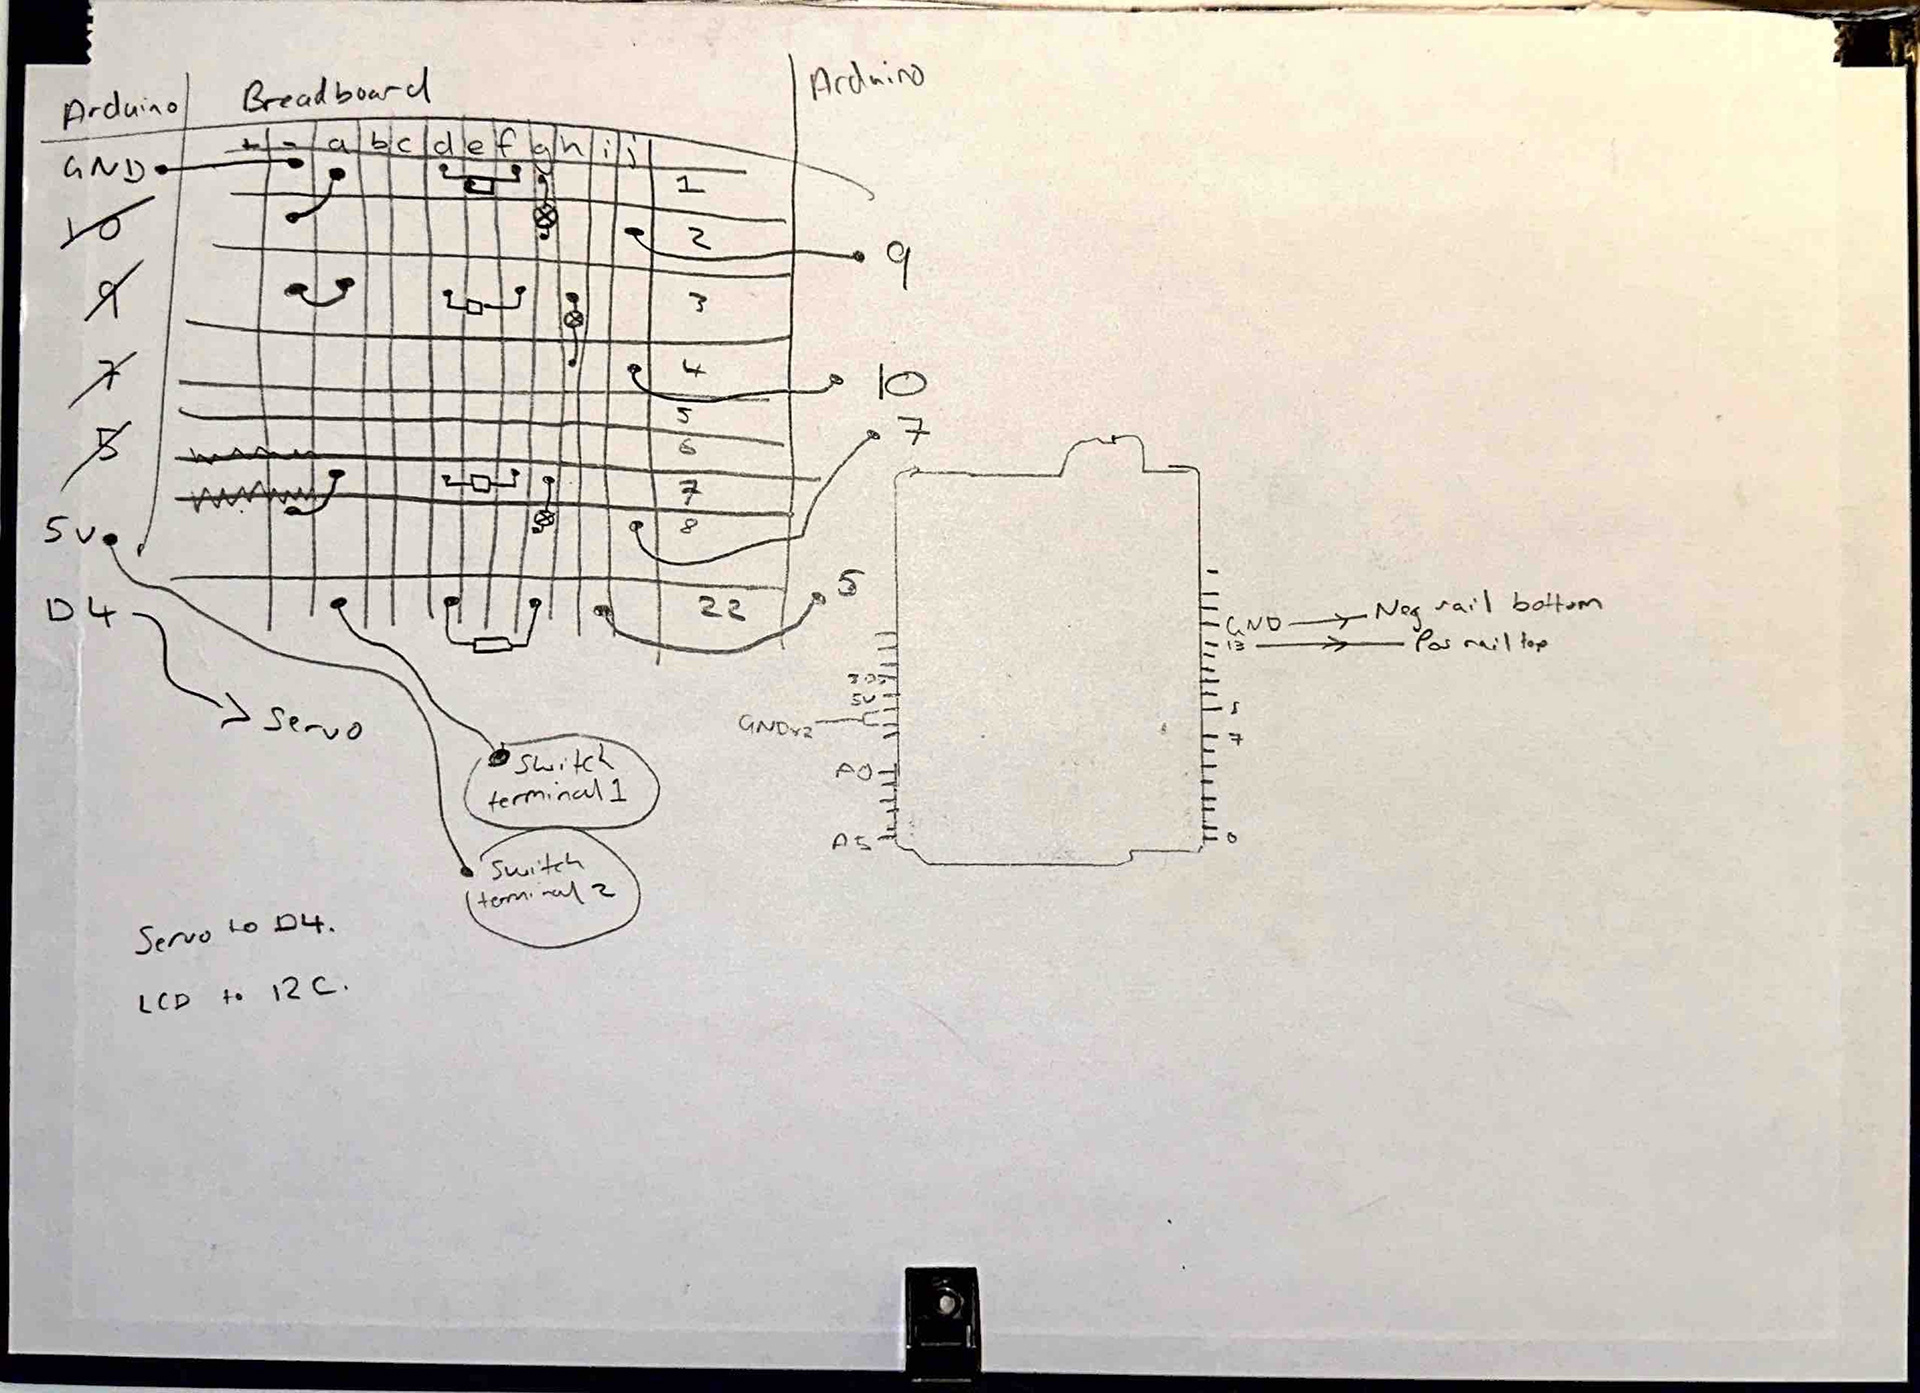 Arduino Breadboard Arduino
+ - a b c d e f g h i j
GND 1
10 2 9
9 3
7 4 10
5
5 6 7
7
5V 8
D4 22 5
Servo
Switch
terminal 1
Switch
terminal 2
Servo to D4.
LCD to I2C.
GND Neg rail bottom
13 Pos rail top
5V
GNDx2
7
A0
A5 0